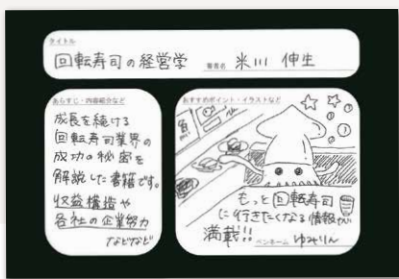 タイトル
回転寿司の経営学 著者名 米川 伸生
あらすじ・内容紹介など
成長を続ける
回転寿司業界の
成功の秘密を
解説した書籍です。
収益構造や
各社の企業努力
などなど
おすすめポイント・イラストなど
もっと回転寿司
に行きたくなる情報が
満載!!
ペンネーム ゆみりん